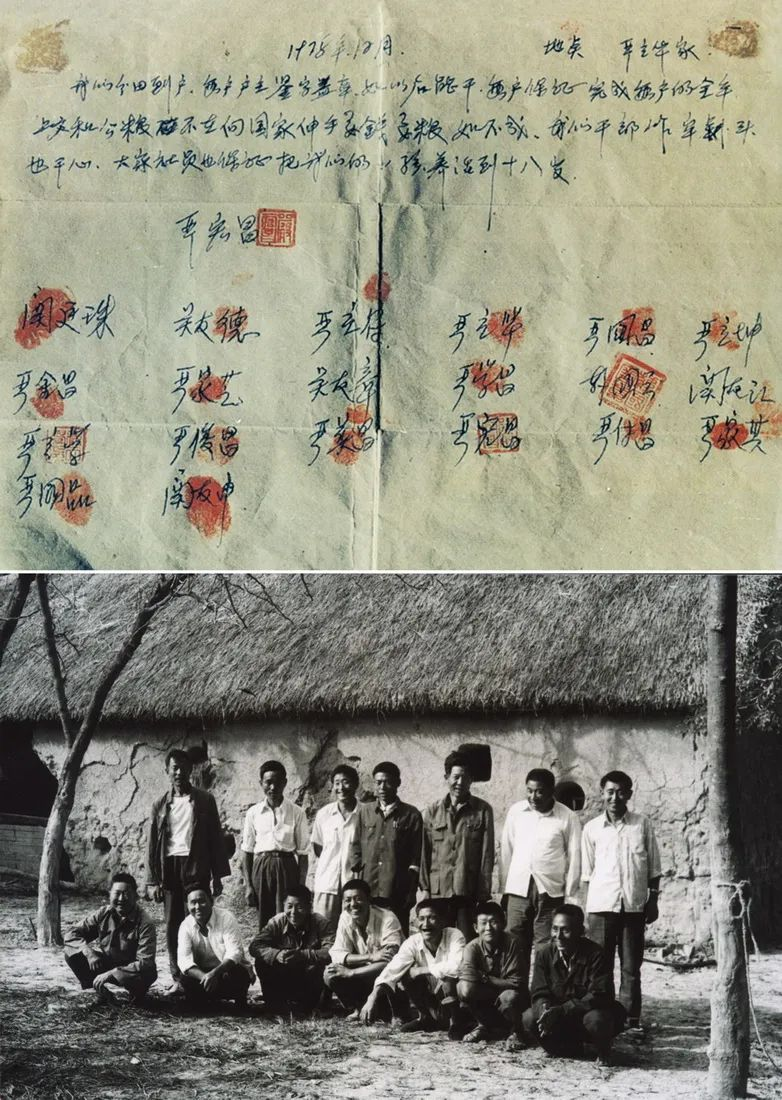 1978年12月. 地点 严立华家.
我们分田到户.每户户主签字盖章.如以后能干.每户保证完成每户的全年
上交和公粮.不在向国家伸手要钱要粮.如不成.我们干部作牢刹头
也干心.大家社员也保证把我们的小孩养活到十八岁.
严宏昌
关廷珠 关友德 严立付 严立华 严国昌 严立坤
严金昌 严家芝 关友章 严学昌 韩国云 关友江
严立学 严俊昌 严美昌 严宏昌 严付昌 严家其
严国品 关友申